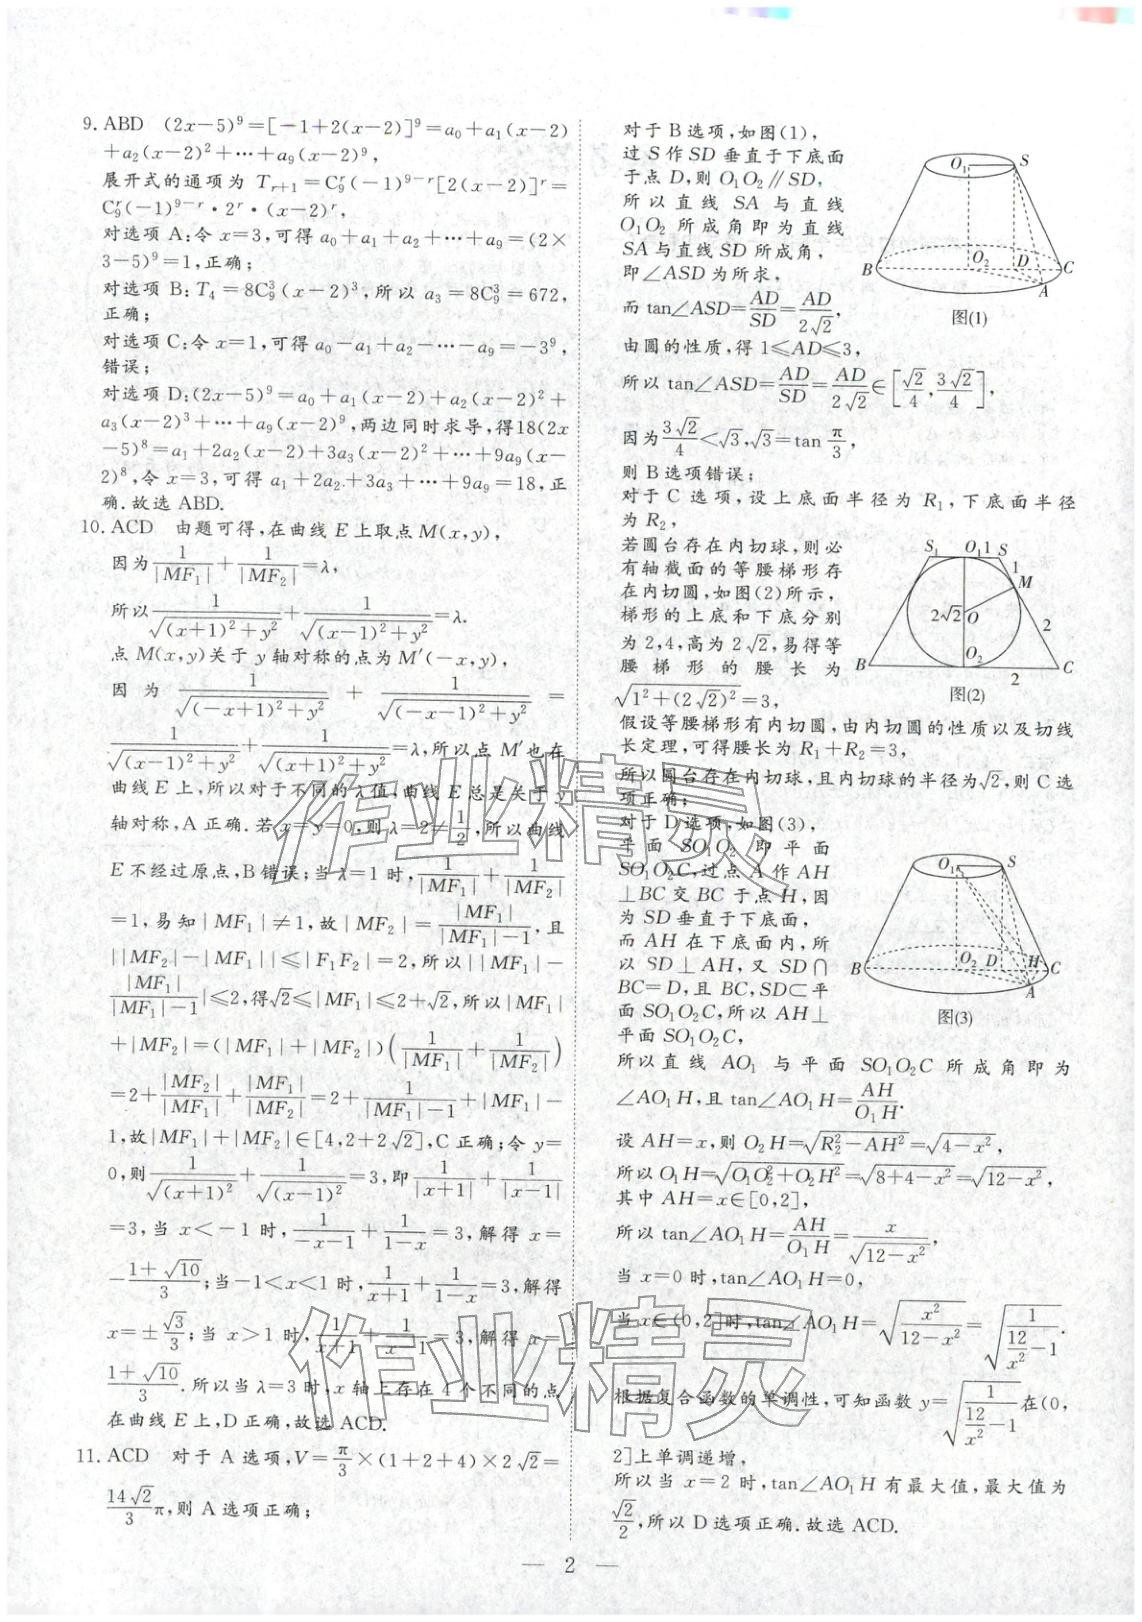 9. ABD　(2x−5)⁹=[−1+2(x−2)]⁹=a₀+a₁(x−2)
+a₂(x−2)²+⋯+a₉(x−2)⁹,
展开式的通项为 Tᵣ₊₁=C₉ʳ(−1)⁹⁻ʳ[2(x−2)]ʳ=
C₉ʳ(−1)⁹⁻ʳ·2ʳ·(x−2)ʳ,
对选项 A:令 x=3,可得 a₀+a₁+a₂+⋯+a₉=(2×
3−5)⁹=1,正确;
对选项 B:T₄=8C₉³(x−2)³,所以 a₃=8C₉³=672,
正确;
对选项 C:令 x=1,可得 a₀−a₁+a₂−⋯−a₉=−3⁹,
错误;
对选项 D:(2x−5)⁹=a₀+a₁(x−2)+a₂(x−2)²+
a₃(x−2)³+⋯+a₉(x−2)⁹,两边同时求导,得18(2x
−5)⁸=a₁+2a₂(x−2)+3a₃(x−2)²+⋯+9a₉(x−
2)⁸,令 x=3,可得 a₁+2a₂+3a₃+⋯+9a₉=18,正
确.故选 ABD.
10. ACD　由题可得,在曲线 E 上取点 M(x,y),
因为1/|MF₁|+1/|MF₂|=λ,
所以1/√((x+1)²+y²)+1/√((x−1)²+y²)=λ.
点 M(x,y)关于 y 轴对称的点为 M′(−x,y),
因为 1/√((−x+1)²+y²) + 1/√((−x−1)²+y²) =
1/√((x−1)²+y²)+1/√((x+1)²+y²)=λ,所以点 M′也在
曲线 E 上,所以对于不同的 λ 值,曲线 E 总是关于 y
轴对称,A 正确.若 x=y=0,则 λ=2≠1/2,所以曲线
E 不经过原点,B错误;当 λ=1 时,1/|MF₁|+1/|MF₂|
=1,易知|MF₁|≠1,故|MF₂|=|MF₁|/(|MF₁|−1),且
||MF₂|−|MF₁||≤|F₁F₂|=2,所以||MF₁|−
|MF₁|/(|MF₁|−1)|≤2,得√2≤|MF₁|≤2+√2,所以|MF₁|
+|MF₂|=(|MF₁|+|MF₂|)(1/|MF₁|+1/|MF₂|)
=2+|MF₂|/|MF₁|+|MF₁|/|MF₂|=2+1/(|MF₁|−1)+|MF₁|−
1,故|MF₁|+|MF₂|∈[4,2+2√2],C 正确;令 y=
0,则1/√((x+1)²)+1/√((x−1)²)=3,即1/|x+1|+1/|x−1|
=3,当 x<−1 时,1/(−x−1)+1/(1−x)=3,解得 x=
−(1+√10)/3;当−1<x<1 时,1/(x+1)+1/(1−x)=3,解得
x=±√3/3;当 x>1 时,1/(x+1)+1/(x−1)=3,解得 x=
(1+√10)/3.所以当 λ=3 时,x 轴上存在 4 个不同的点
在曲线 E 上,D 正确,故选 ACD.
11. ACD　对于 A 选项,V=π/3×(1+2+4)×2√2=
14√2/3π,则 A 选项正确;
对于 B 选项,如图(1),
过 S 作 SD 垂直于下底面
于点 D,则 O₁O₂∥SD,
所以直线 SA 与直线
O₁O₂ 所成角即为直线
SA 与直线 SD 所成角,
即∠ASD 为所求,
而 tan∠ASD=AD/SD=AD/2√2,
由圆的性质,得 1≤AD≤3,
所以 tan∠ASD=AD/SD=AD/2√2∈[√2/4,3√2/4],
因为3√2/4<√3,√3=tan π/3,
则 B 选项错误;
O₁
S
B
O₂
D
C
A
图(1)
对于 C 选项,设上底面半径为 R₁,下底面半径
为 R₂,
若圆台存在内切球,则必
有轴截面的等腰梯形存
在内切圆,如图(2)所示,
梯形的上底和下底分别
为 2,4,高为 2√2,易得等
腰梯形的腰长为
√(1²+(2√2)²)=3,
S₁
O₁
1
S
1
M
2√2
O
2
B
O₂
2
C
图(2)
假设等腰梯形有内切圆,由内切圆的性质以及切线
长定理,可得腰长为 R₁+R₂=3,
所以圆台存在内切球,且内切球的半径为√2,则 C 选
项正确;
对于 D 选项,如图(3),
平面 SO₁O₂ 即平面
SO₁O₂C,过点 A 作 AH
⊥BC 交 BC 于点 H,因
为 SD 垂直于下底面,
而 AH 在下底面内,所
以 SD⊥AH,又 SD∩
BC=D,且 BC,SD⊂平
面 SO₁O₂C,所以 AH⊥
平面 SO₁O₂C,
O₁
S
B
O₂
D
H
C
A
图(3)
所以直线 AO₁ 与平面 SO₁O₂C 所成角即为
∠AO₁H,且 tan∠AO₁H=AH/O₁H.
设 AH=x,则 O₂H=√(R₂²−AH²)=√(4−x²),
所以 O₁H=√(O₁O₂²+O₂H²)=√(8+4−x²)=√(12−x²),
其中 AH=x∈[0,2],
所以 tan∠AO₁H=AH/O₁H=x/√(12−x²),
当 x=0 时,tan∠AO₁H=0,
当 x∈(0,2]时,tan∠AO₁H=√(x²/(12−x²))=√(1/(12/x²−1)).
根据复合函数的单调性,可知函数 y=√(1/(12/x²−1))在(0,
2]上单调递增,
所以当 x=2 时,tan∠AO₁H 有最大值,最大值为
√2/2,所以 D 选项正确.故选 ACD.
作业精灵
作业精灵
— 2 —